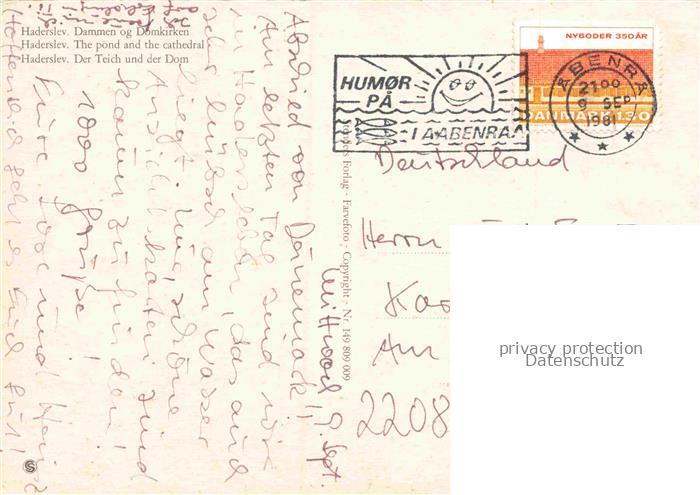 Haderslev. Dammen og Domkirken
Haderslev. The pond and the cathedral
Haderslev. Der Teich und der Dom
NYBODER 350 ÅR
DANMARK 1.30
ÅBENRÅ
21 00
9 SEP
1981
HUMØR
PÅ
I AABENRAA
Deutschland
Herrn
Am
2208
Forlag - Farvefoto - Copyright - Nr. 149 809 009
Mittwoch 9. Sept.
Abschied von Dänemark!
Am letzten Tag sind wir
in Hadersleben, das auch
sehr am Wasser
liegt, nur schöne
Ansichtskarten sind
kaum zu finden!
1000 Grüße!
Eure und
Hoffentlich geht es Euch gut!
S
privacy protection
Datenschutz